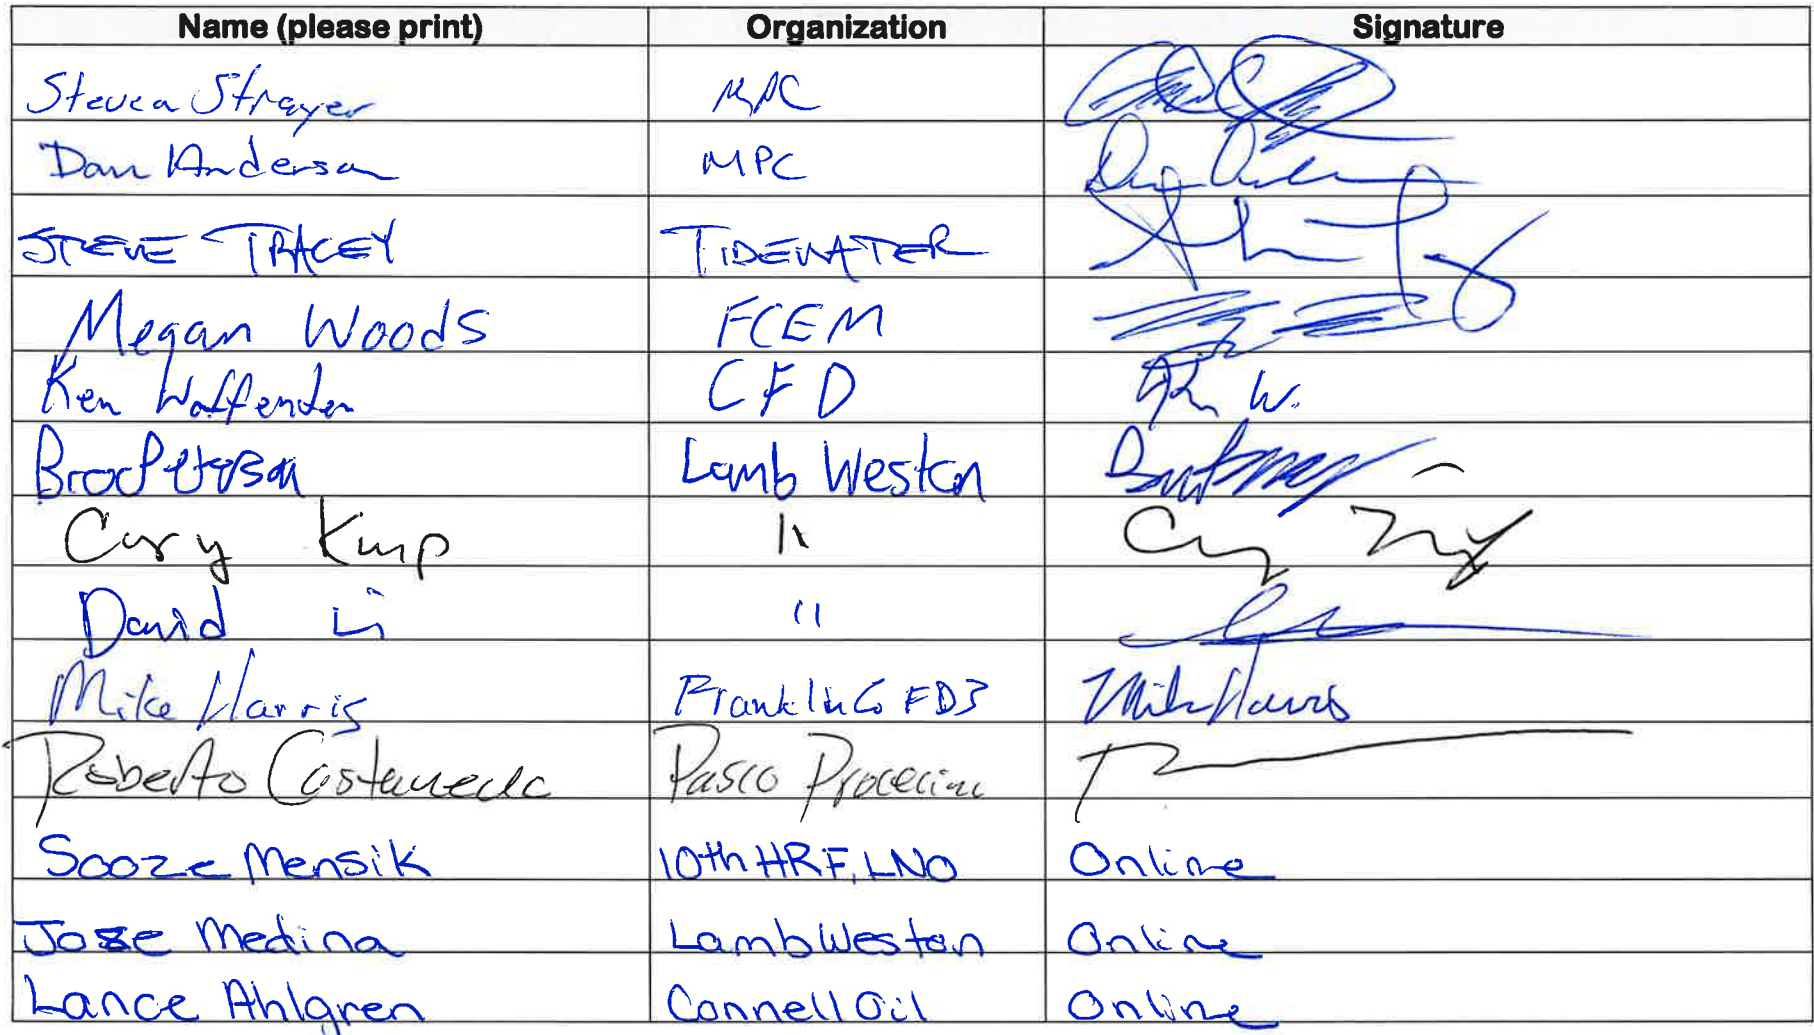 Name (please print) Organization Signature
Steven Strayer MPC
Dan Anderson MPC
STEVE TRACEY TIDEWATER
Megan Woods FCEM
Ken Woffenden CFD Ken W.
Brod Peterson Lamb Weston
Cory Kmp 11
David Li 11
Mike Harris Franklin Co FD3 Mike Harris
Roberto Castaneda Pasco Processing
Sooze Mensik 10th HRF, LNO Online
Jose Medina Lamb Weston Online
Lance Ahlgren Connell Oil Online